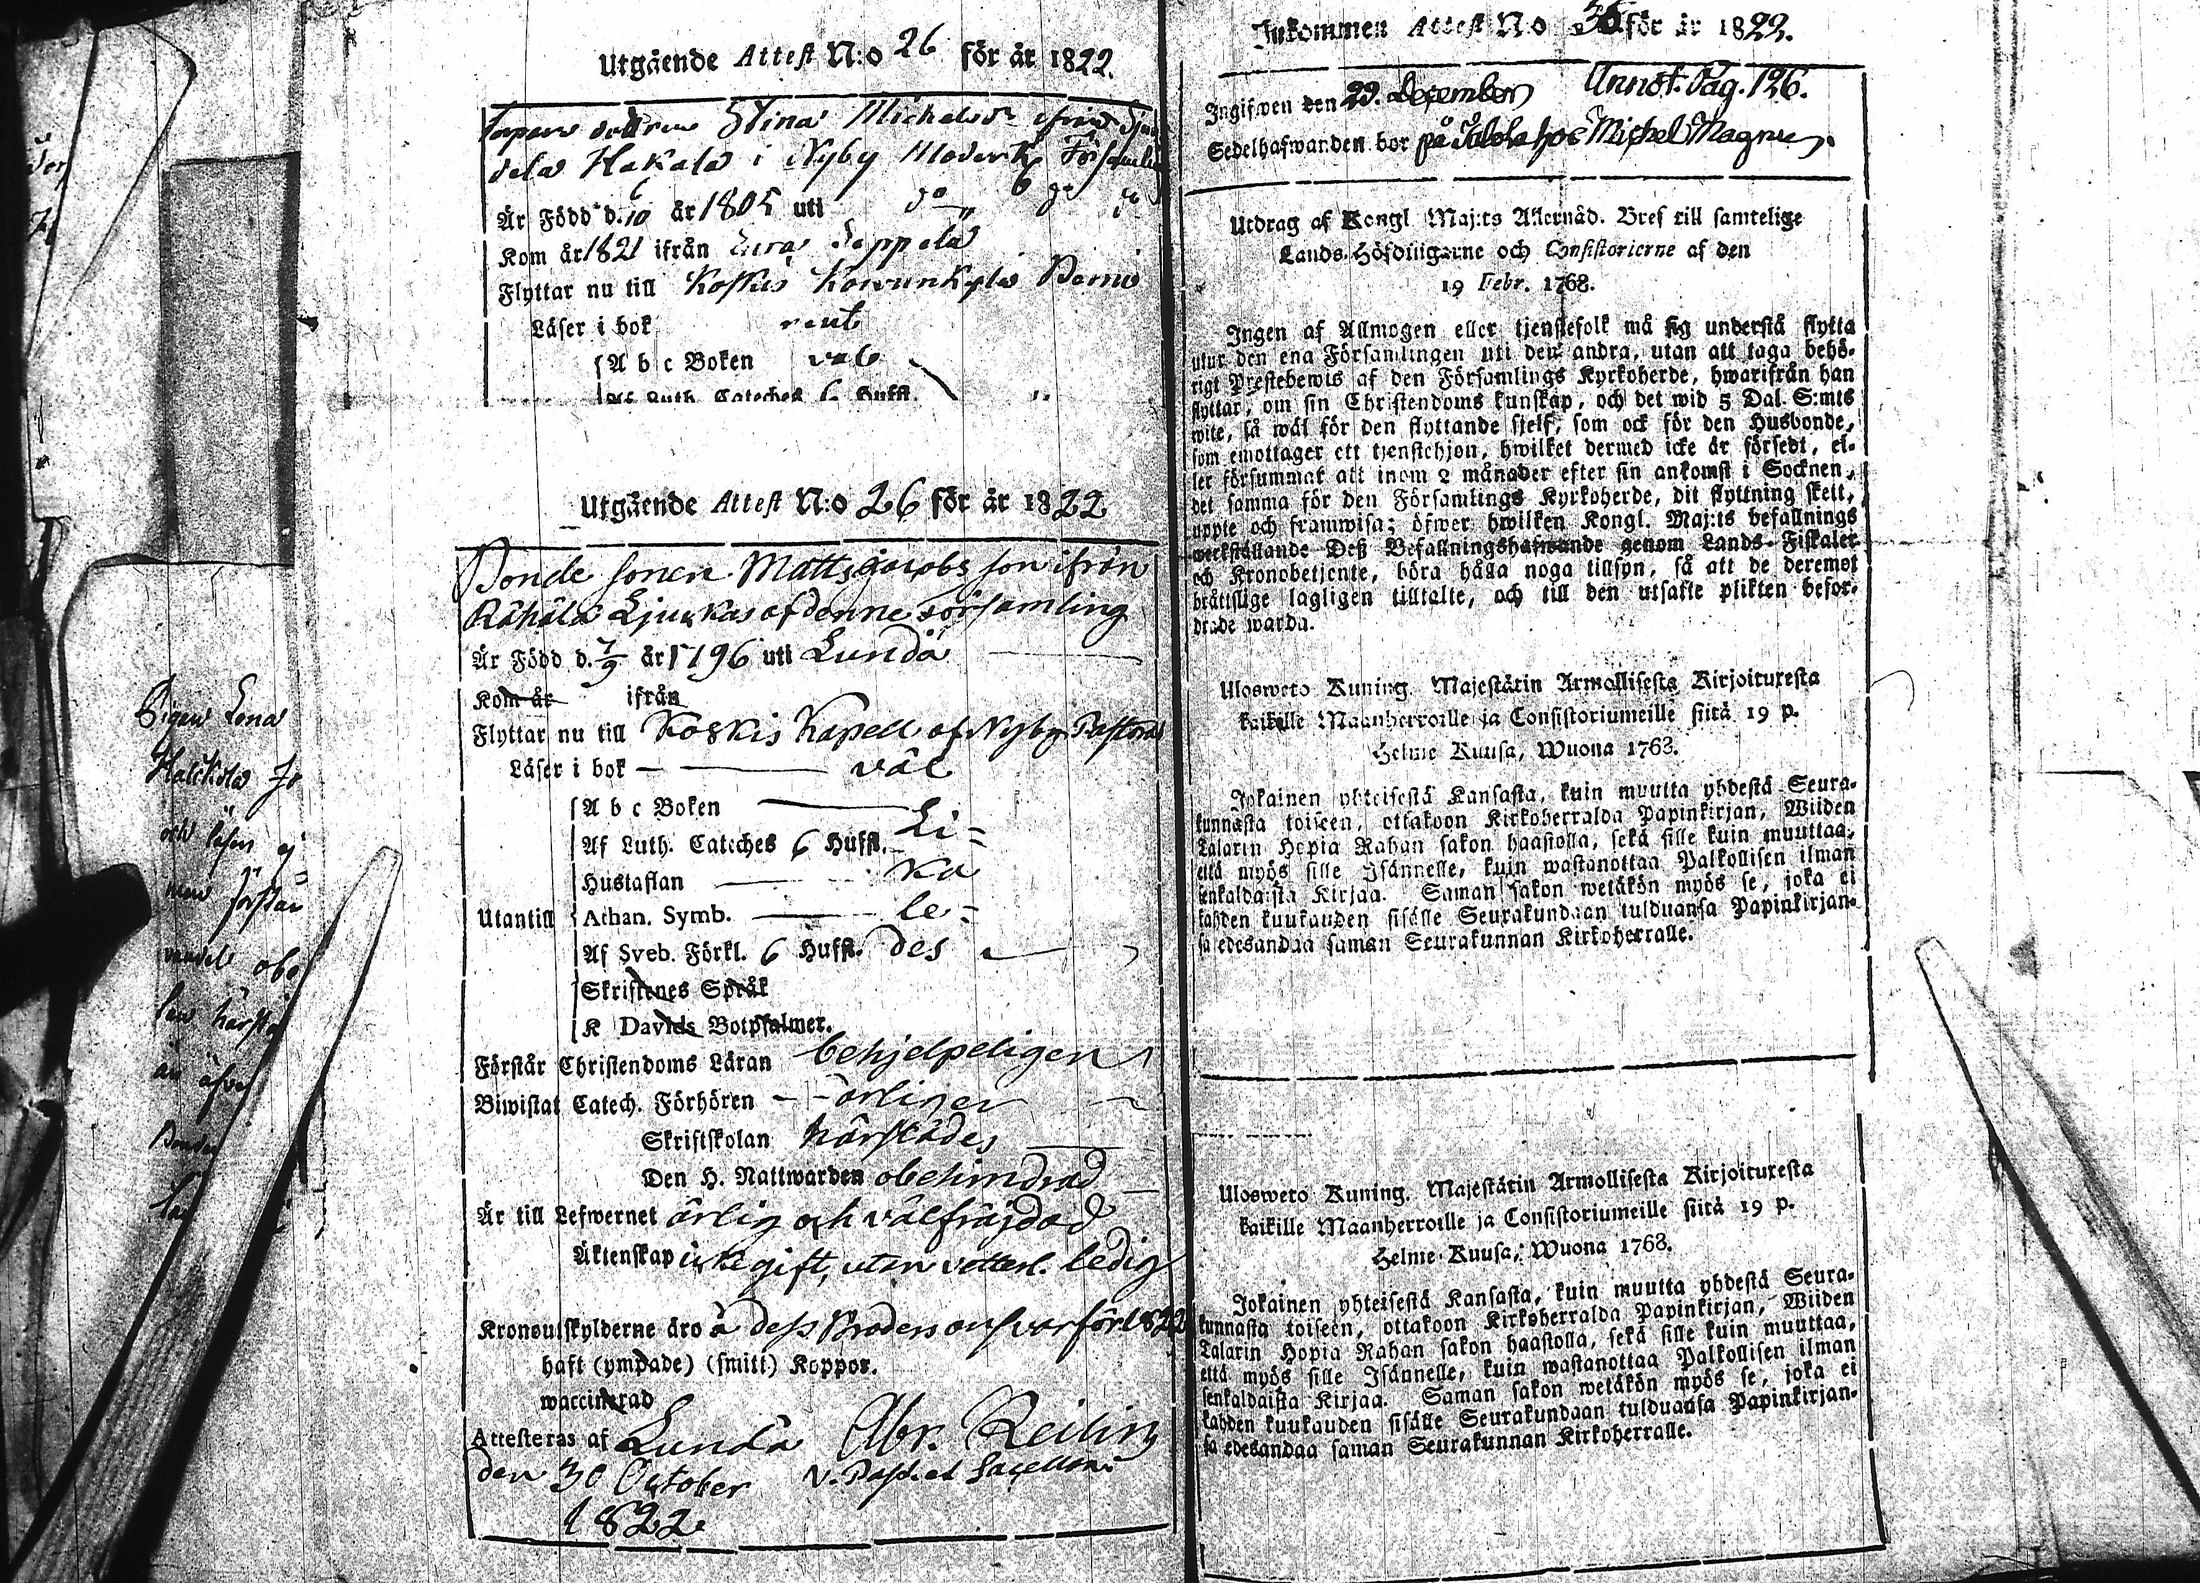 Utgående Attest N:o 26 för år 1822.
Stina Michelsdr ifrån
Hakala i Nyby Moderk. Församling
Är Född d. 6/10 år 1805 uti
Kom år 1821 ifrån Eura Seppälä
Flyttar nu till Koskis
Läser i bok rent
A b c Boken väl
Af Luth. Cateches 6 Hufst.
Utgående Attest N:o 26 för år 1822
Bonde sonen Matts Jacobsson ifrån
Rähälä Ljuukas af denne församling
Är Född d. 7/9 år 1796 uti Lundå
Kom år ifrån
Flyttar nu till Koskis Kapell af Nyby Pastorat
Läser i bok — väl
A b c Boken
Af Luth. Cateches 6 Hufst. Li=
Hustaflan ka
Utantill Athan. Symb. le=
Af Sveb. Förkl. 6 Hufst. des
Skriftenes Språk
K Davids Botpsalmer.
Förstår Christendoms Läran behjelpeligen
Biwistat Catech. Förhören - - årligen
Skriftskolan härstädes
Den H. Nattwarden obehindrad
Är till Lefwernet ärlig och välfräjdad
Äktenskap icke gift, utan ledig
Kronoutskylderne äro å dess Broders answar för 1822
haft (ympade) (smitt) Koppor.
waccinerad
Attesteras af Lundå Abr. Reilin
den 30 October V. Past. et Sacellan.
1822
Pigan Lena
och läser ej
Inkommen Attest N:o 36 för år 1822.
Ingifwen den 29. December Annot. Pag. 126.
Sedelhafwanden bor på hos Michel Magnus.
Utdrag af Kongl Maj:ts Allernåd. Bref till samtelige
Lands-Höfdingarne och Consistorierne af den
19 Febr. 1768.
Ingen af Allmogen eller tjenstefolk må sig understå flytta
utur den ena Församlingen uti den andra, utan att taga behö-
rigt Prestebewis af den Församlings Kyrkoherde, hwarifrån han
flyttar, om sin Christendoms kunskap, och det wid 5 Dal. S:mts
wite, så wäl för den flyttande sjelf, som ock för den Husbonde,
som emottager ett tjenstehjon, hwilket dermed icke är försedt, el-
ler försummat att inom 2 månader efter sin ankomst i Socknen,
det samma för den Församlings Kyrkoherde, dit flyttning skett,
uppte och framwisa; öfwer hwilken Kongl. Maj:ts befallnings
werkställande Deß Befallningshafwande genom Lands-Fiskaler
och Kronobetjente, böra hålla noga tillsyn, så att de deremot
bråttslige lagligen tilltalte, och till den utsatte plikten befor-
drade warda.
Ulosweto Kuning. Majestätin Armollisesta Kirjoituxesta
kaikille Maanherroille ja Consistoriumeille siitä 19 p.
Helme Kuusa, Wuona 1768.
Jokainen yhteisestä Kansasta, kuin muutta yhdestä Seura-
kunnasta toiseen, ottakoon Kirkoherralda Papinkirjan, Wiiden
Talarin Hopia Rahan sakon haastolla, sekä sille kuin muuttaa,
että myös sille Isännelle, kuin wastanottaa Palkollisen ilman
senkaldaista Kirjaa. Saman sakon wetäkön myös se, joka ei
kahden kuukauden sisälle Seurakundaan tulduansa Papinkirjan-
sa edesandaa saman Seurakunnan Kirkoherralle.
Ulosweto Kuning. Majestätin Armollisesta Kirjoituxesta
kaikille Maanherroille ja Consistoriumeille siitä 19 p.
Helme-Kuusa, Wuona 1768.
Jokainen yhteisestä Kansasta, kuin muutta yhdestä Seura-
kunnasta toiseen, ottakoon Kirkoherralda Papinkirjan, Wiiden
Talarin Hopia Rahan sakon haastolla, sekä sille kuin muuttaa,
että myös sille Isännelle, kuin wastanottaa Palkollisen ilman
senkaldaista Kirjaa. Saman sakon wetäkön myös se, joka ei
kahden kuukauden sisälle Seurakundaan tulduansa Papinkirjan-
sa edesandaa saman Seurakunnan Kirkoherralle.